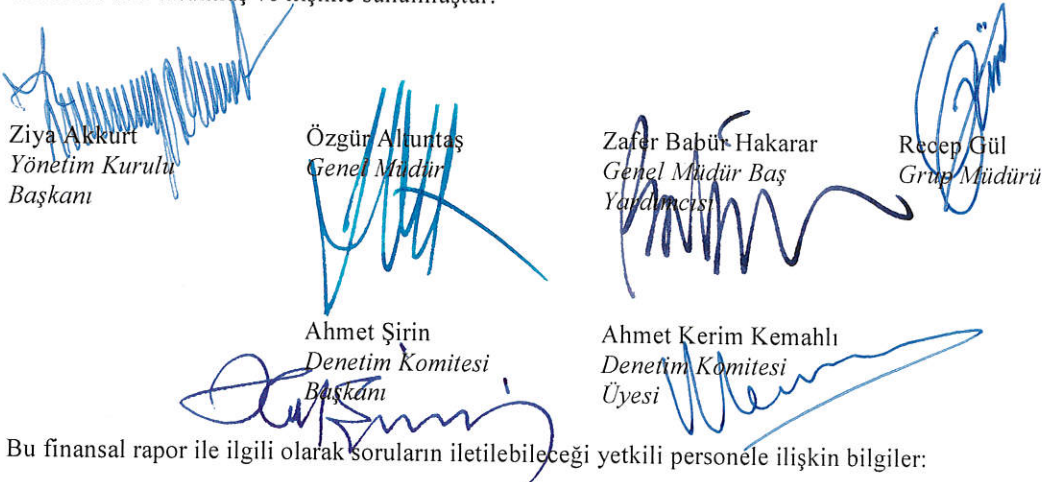 ve ilişikte sunulmuştur.
Ziya Akkurt
Yönetim Kurulu
Başkanı
Özgür Altuntaş
Genel Müdür
Zafer Babür Hakarar
Genel Müdür Baş
Yardımcısı
Recep Gül
Grup Müdürü
Ahmet Şirin
Denetim Komitesi
Başkanı
Ahmet Kerim Kemahlı
Denetim Komitesi
Üyesi
Bu finansal rapor ile ilgili olarak soruların iletilebileceği yetkili personele ilişkin bilgiler: